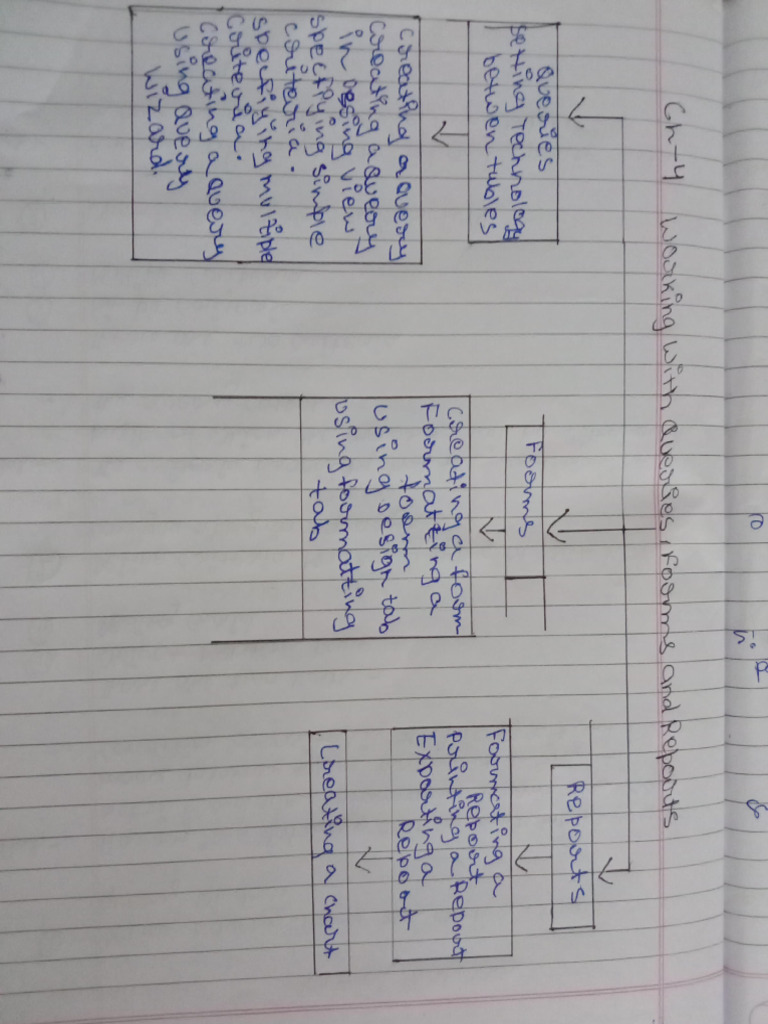 Ch-4 Working with Queries, Forms and Reports
Queries
setting Technology
between tubles
Creating a query
Creating a query
in Desing view
specifying simple
criteria.
specifiying multiple
Criteria.
Creating a Query
using query
wizard.
Forms
Creating a form
Formatting a
form
using Design tab
using formatting
tab
Reports
Formating a
Report
Printing a Report
Exporting a
Report
Creating a chart